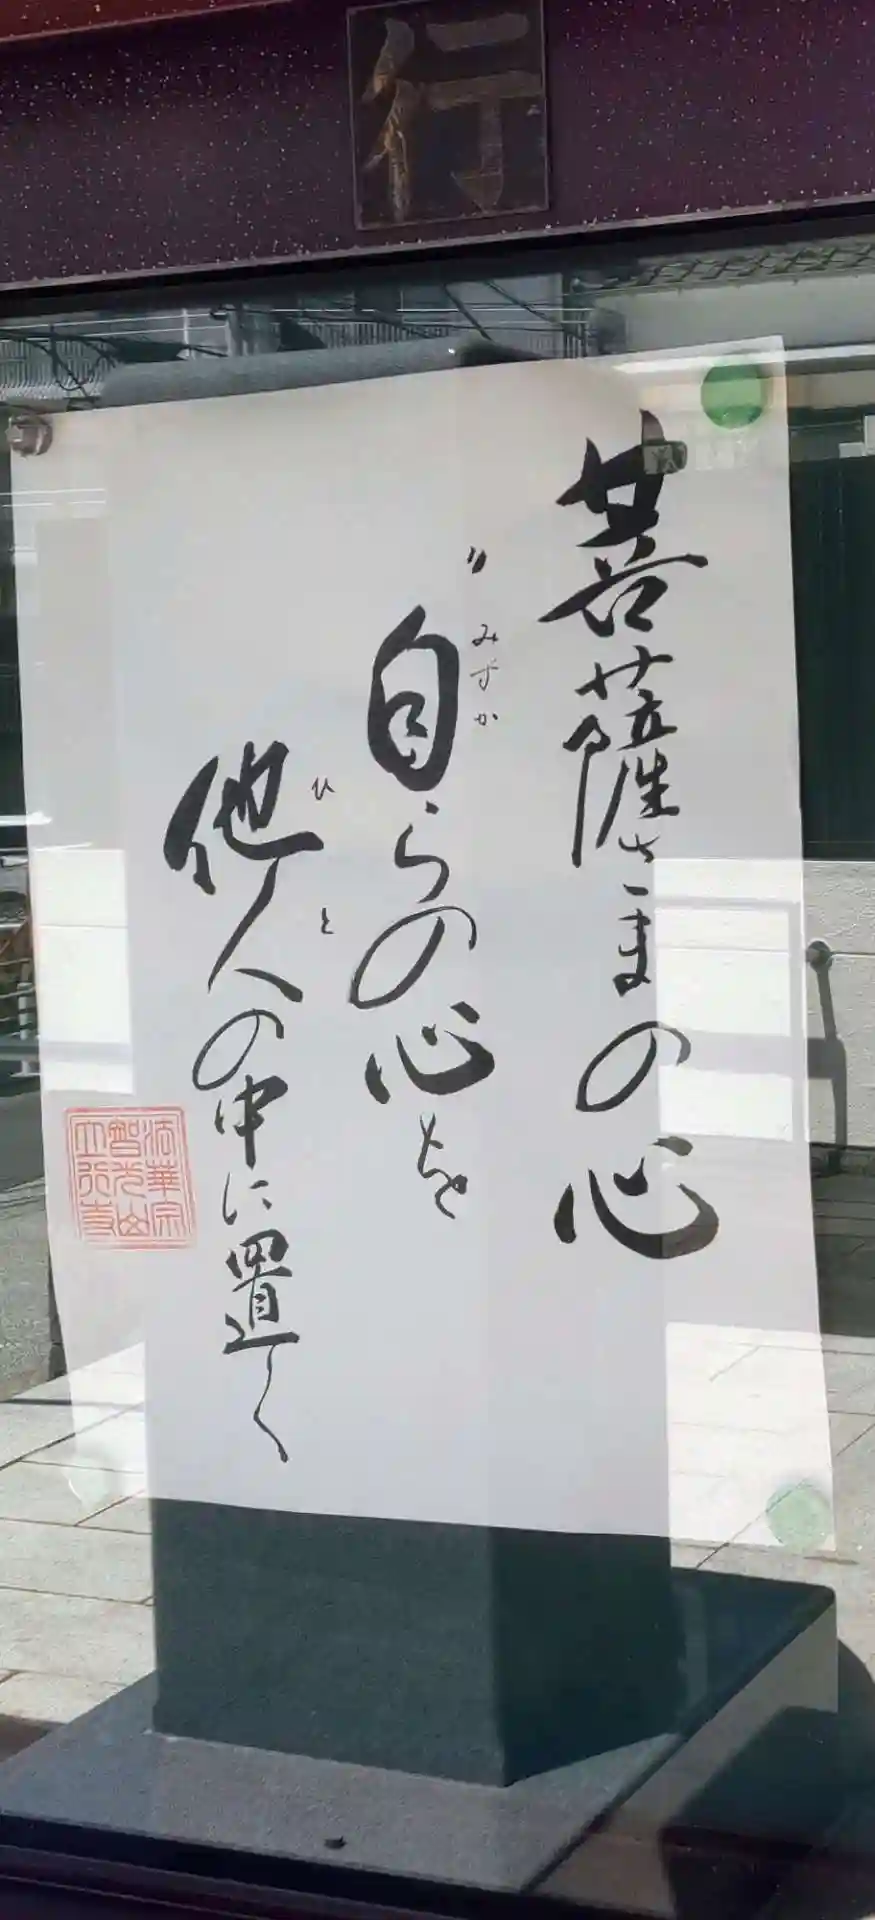 行
菩薩さまの心
〃みずか
自らの心を
ひと
他人の中に置く
法華宗
智光山
立行寺